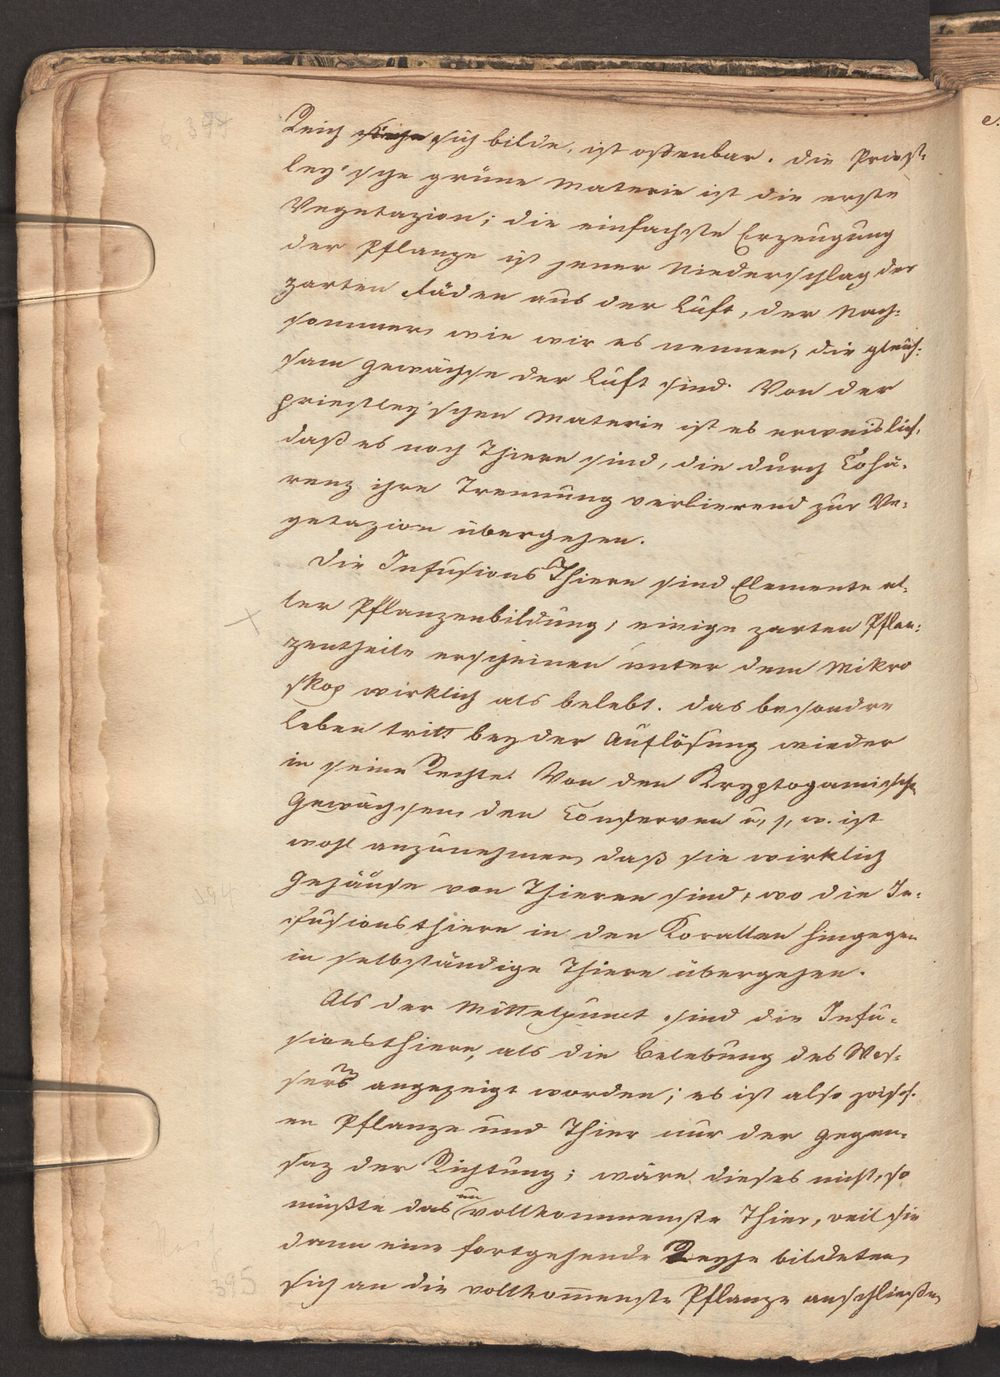 6 394
Reich sich bilde, ist offenbar. die Priest-
ley'sche grüne Materie ist die erste
Vegetazion; die einfachste Erzeugung
der Pflanze ist jener Niederschlag der
zarten Fäden aus der Luft, der Nach-
sommer, wie wir es nennen, die gleich-
sam Gewächse der Luft sind. Von der
priestley'schen Materie ist es erweislich,
daß es noch Thiere sind, die durch Cohä-
renz ihre Trennung verlierend zur Ve-
getazion übergehen.
Die Infusions Thiere sind Elemente al-
ler Pflanzenbildung, einige zarten Pflan-
zentheile erscheinen unter dem Mikro
skop wirklich als belebt. das besondre
Leben tritt bey der Auflösung wieder
in seine Rechte. Von den Kryptogamischen
Gewächsen, den Conferven u. s. w. ist
wohl anzunehmen, daß sie wirklich
Gehäuse von Thieren sind, wo die In-
fusionsthiere in den Korallen hingegen
in selbständige Thiere übergehen.
Als der Mittelpunct sind die Infu-
sionsthiere, als die Belebung des Was-
sers angezeigt worden; es ist also zwisch-
en Pflanze und Thier nur der Gegen-
saz der Richtung; wäre dieses nicht, so
müßte das unvollkommenste Thier, weil sie
dann eine fortgehende Reyhe bildeten,
sich an die vollkommenste Pflanze anschließen,
394
395